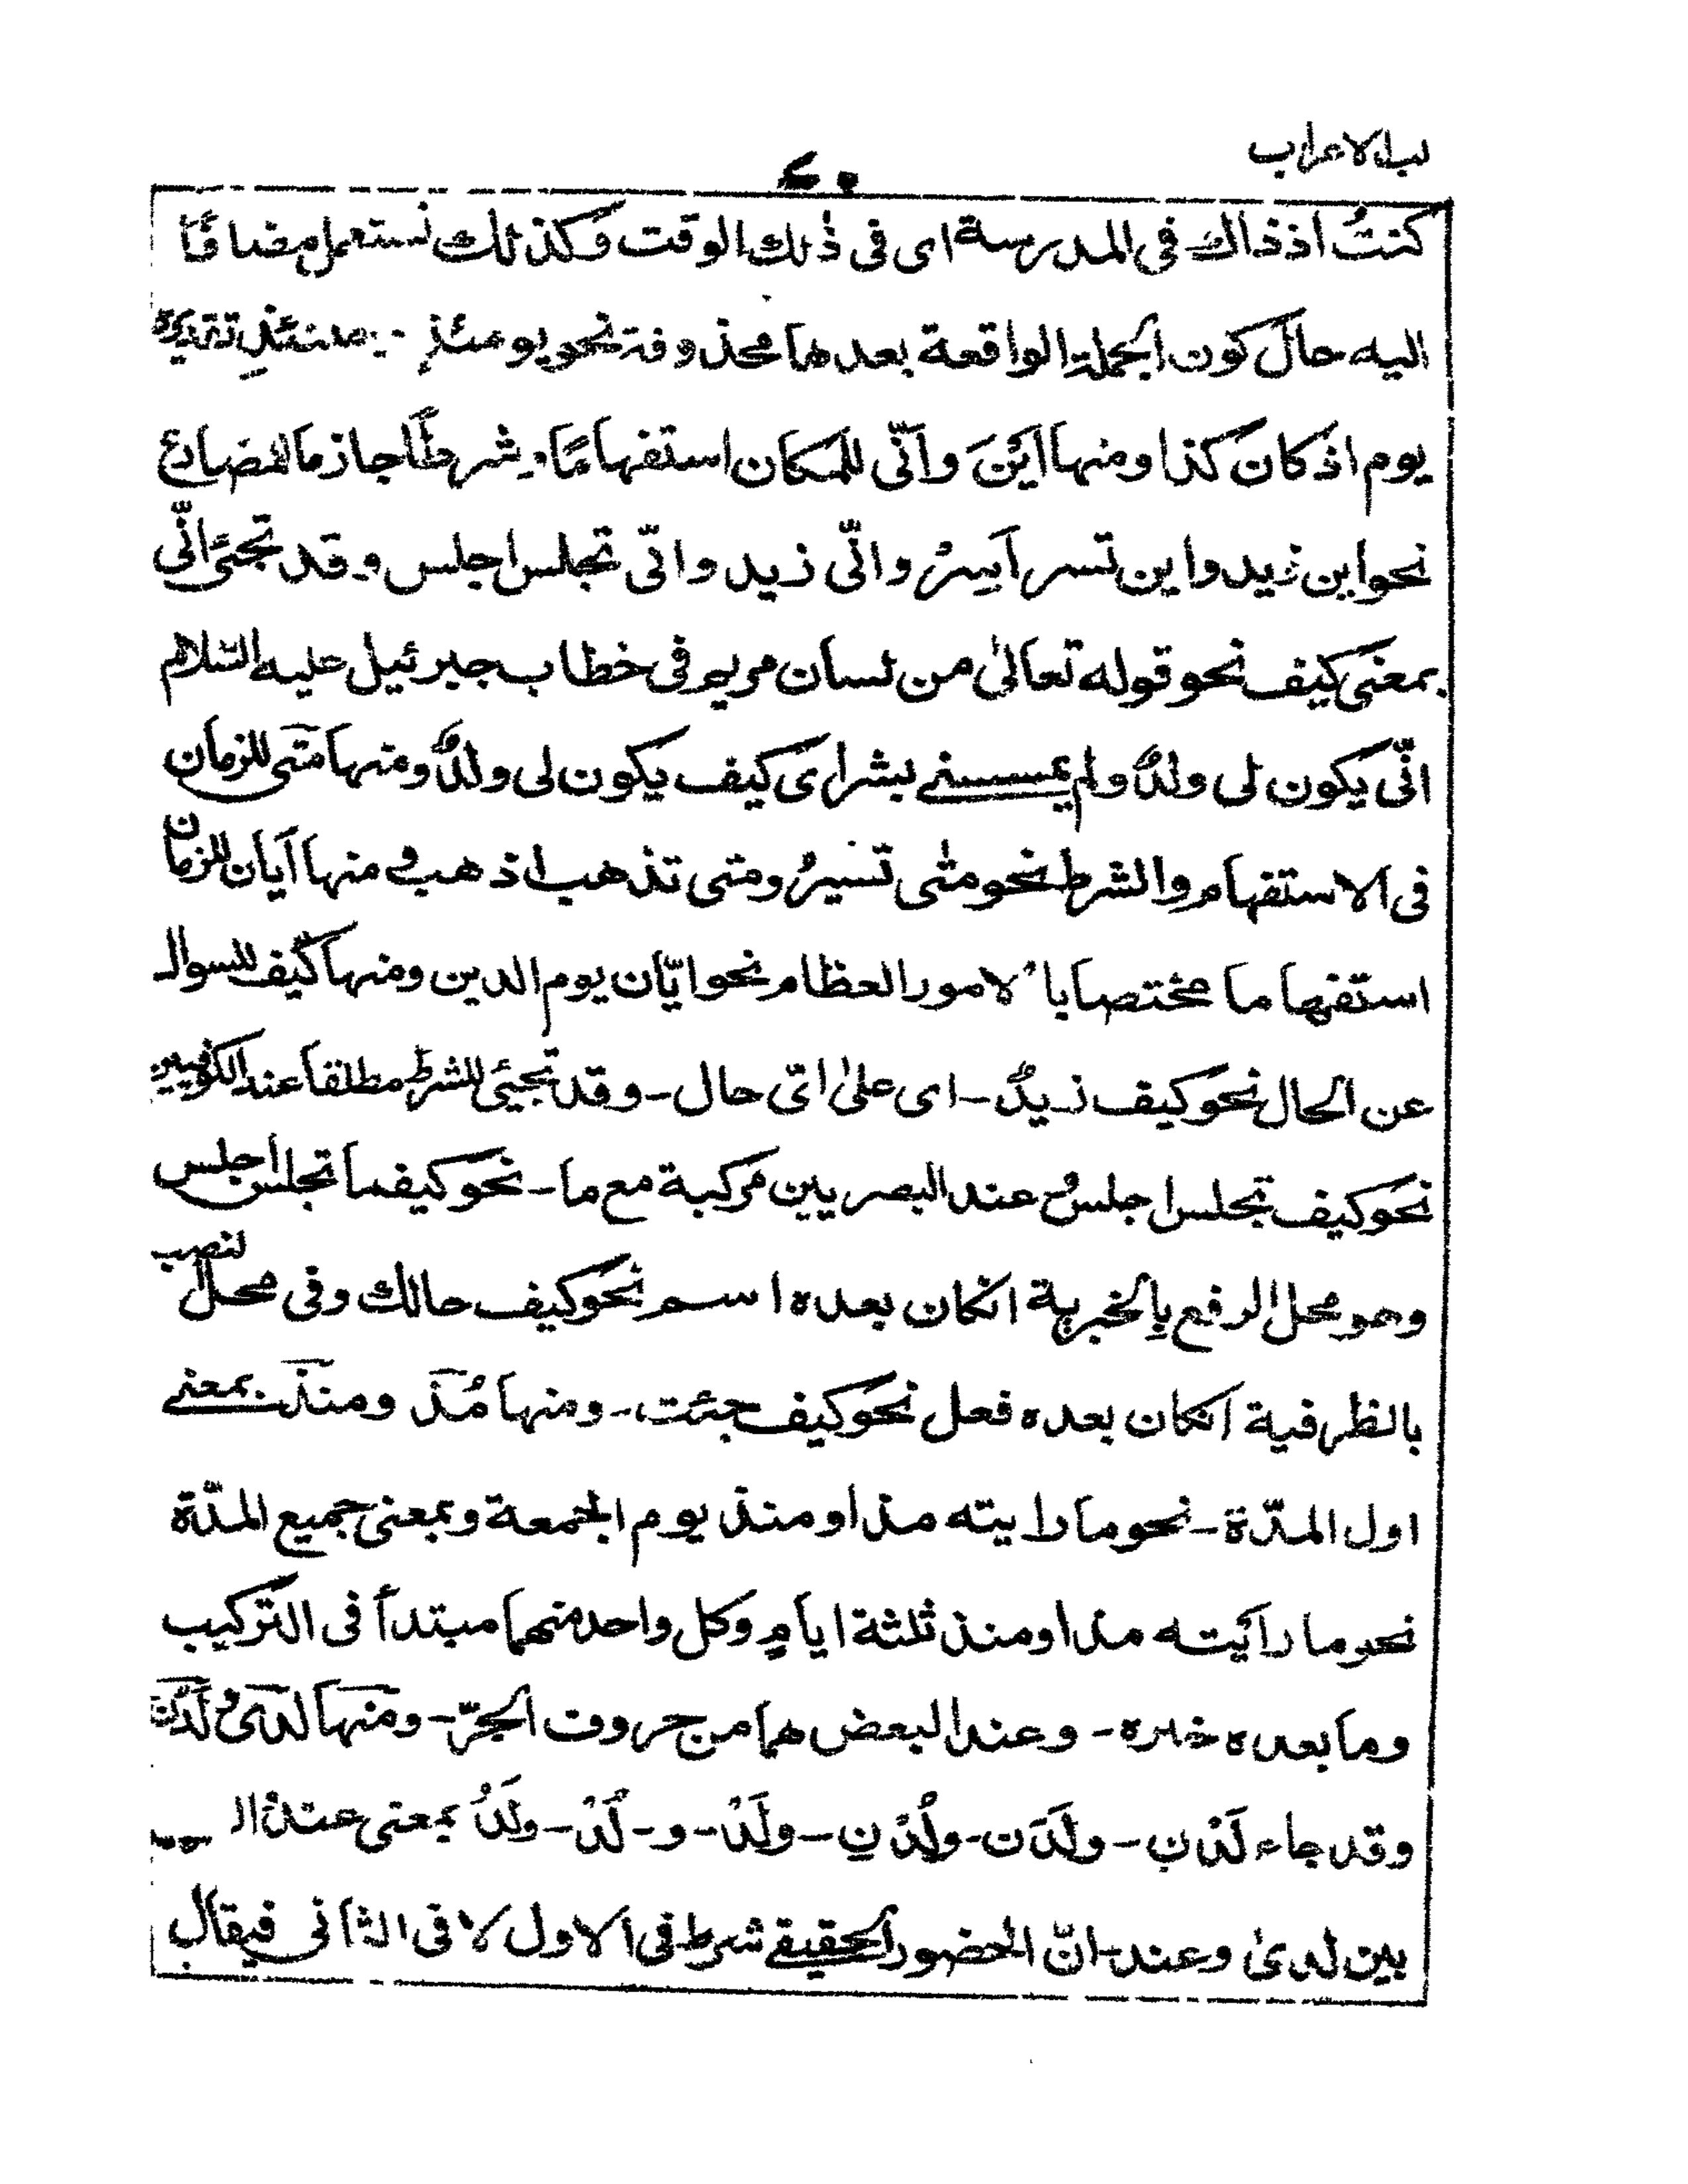 لب الاعراب
كنتُ اذ ذاك فى المدرسة اى فى ذٰلك الوقت وكذلك تستعمل مضافًا
اليه حال كون الجملة الواقعة بعدها محذوفة نحو يومئذٍ حينئذٍ تقديره
يوم اذ كان كذا ومنها اَيْنَ واَنّٰى للمكان استفهامًا وشرطًا جاز ما لمضارع
نحو اين زيد واين تسر اَسِرْ وانّٰى زيد وانّى تجلس اجلس وقد تجئ انّى
بمعنى كيف نحو قوله تعالىٰ من لسان مريم فى خطاب جبرئيل عليه السلام
انّٰى يكون لى ولدٌ ولم يمسسنے بشر اى كيف يكون لى ولدٌ ومنها متى للزمان
فى الاستفهام والشرط نحو متٰى تسيرُ ومتى تذهب اذهب ومنها اَيان للزمان
استفهاما مختصا بالامور العظام نحو ايّان يوم الدين ومنها كيف للسوال
عن الحال نحو كيف زيدٌ - اى علىٰ اىّ حال - وقد تجيئ للشرط مطلقا عند الكوفيين
نحو كيف تجلس اجلس و عند البصريين مركبة مع ما - نحو كيفما تجلس اجلس
وهو محل الرفع بالخبرية انكان بعده اسم نحو كيف حالك وفى محل لنصب
بالظرفية انكان بعده فعل نحو كيف جئت - ومنها مُذ ومنذ بمعنے
اول المدّة - نحو ما رايته مذ او منذ يوم الجمعة وبمعنى جميع المدّة
نحو ما رائيته مذ او منذ ثلثة ايامٍ وكل واحد منهما مبتدأ فى التركيب
وما بعده خبره - وعند البعض هما من حروف الجرّ - ومنها لدى و لَدُن
وقد جاء لَدْنِ - ولَدَن - ولُدْنِ - ولَدْ - و - لُدْ - ولَدُ بمعنى عند
بين لدىٰ وعند - انّ الحضور الحقيقے شرط فى الاول لا فى الثانى فيقال